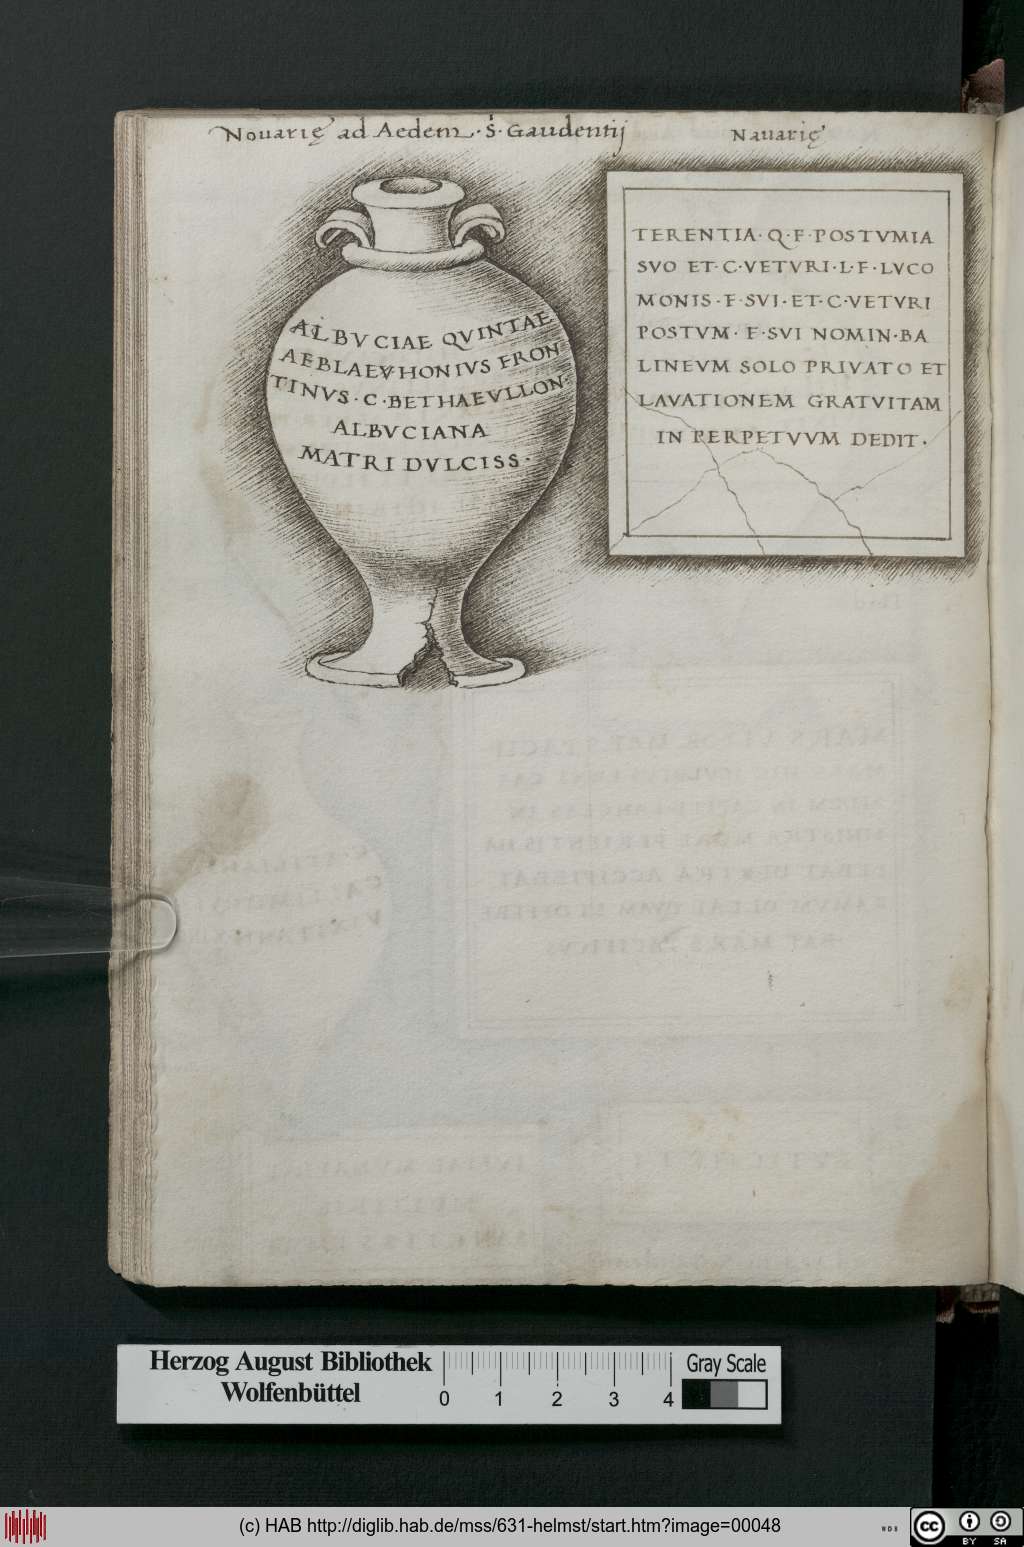 Novarię ad Aedem · S · Gaudentij
ALBVCIAE QVINTAE
AEBLAEVHONIVS FRON
TINVS · C · BETHAEVLLON·
ALBVCIANA
MATRI DVLCISS ·
Navarię
TERENTIA · Q · F · POSTVMIA
SVO ET · C · VETVRI · L · F · LVCO
MONIS · F · SVI · ET · C · VETVRI
POSTVM · F · SVI NOMIN · BA
LINEVM SOLO PRIVATO ET
LAVATIONEM GRATVITAM
IN PERPETVVM DEDIT ·
Herzog August Bibliothek
Wolfenbüttel
0 1 2 3 4
Gray Scale
(c) HAB http://diglib.hab.de/mss/631-helmst/start.htm?image=00048
WDB
cc BY SA